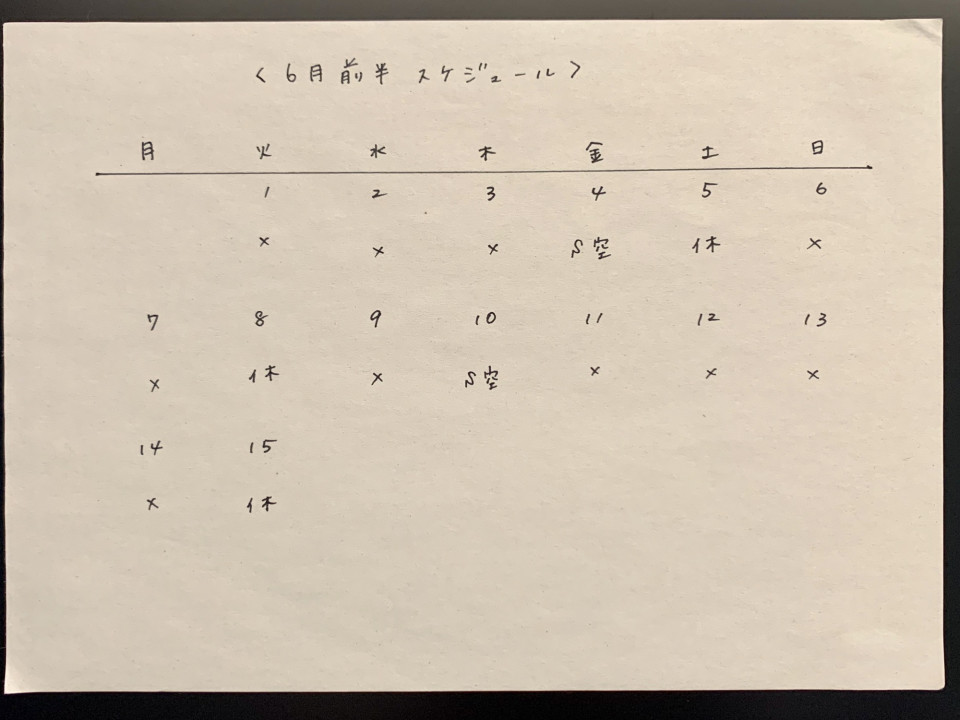 <6月前半 スケジュール>
月 火 水 木 金 土 日
1 2 3 4 5 6
× × × S空 休 ×
7 8 9 10 11 12 13
× 休 × S空 × × ×
14 15
× 休